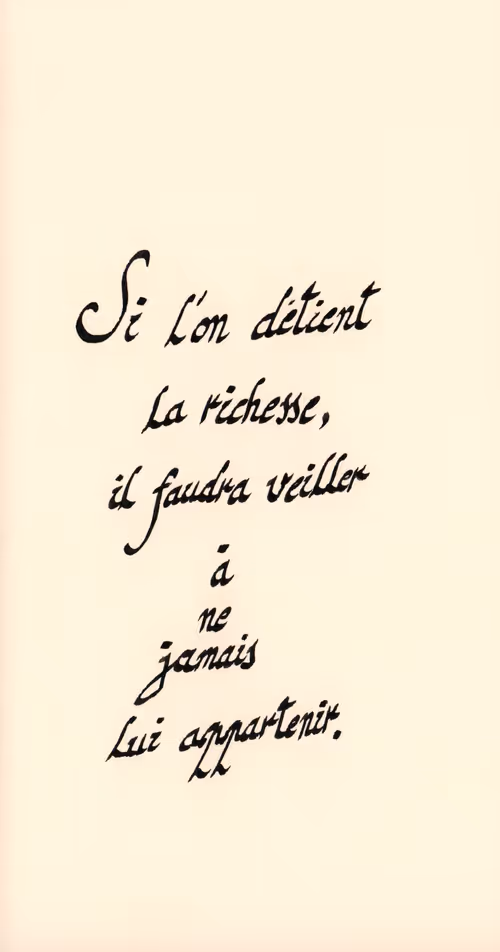 Si l'on détient
la richesse,
il faudra veiller
à
ne
jamais
lui appartenir.